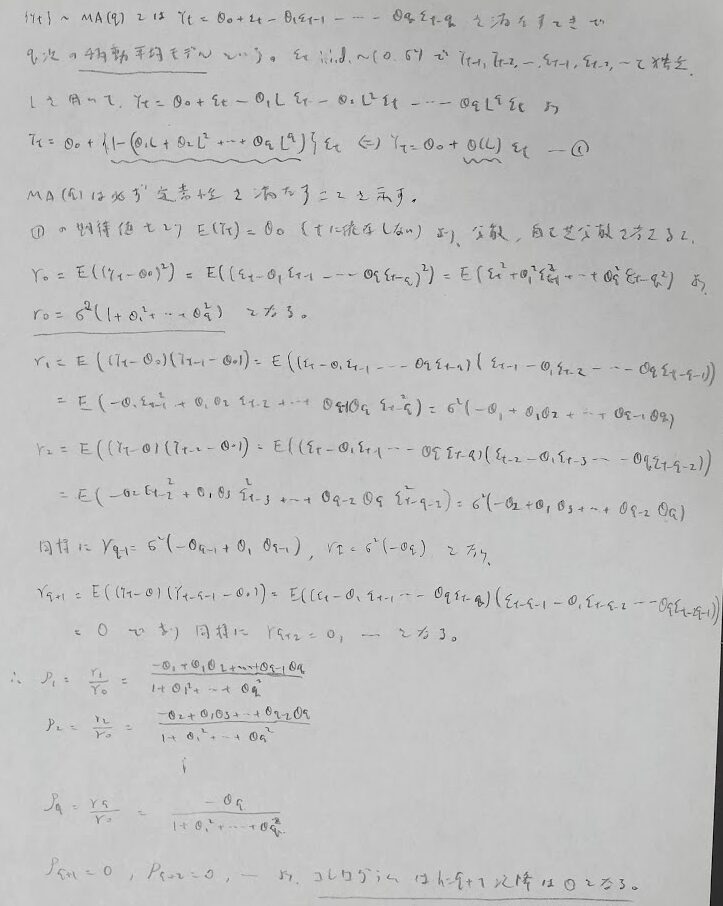 {Yt} ~ MA(q) とは Yt = θ0 + εt - θ1εt-1 - ... - θqεt-q を満たすときで
q次の移動平均モデルという。 εt i.i.d. ~ (0, σ²) で Yt-1, Yt-2, ..., εt-1, εt-2, ... と独立.
Lを用いて, Yt = θ0 + εt - θ1L εt - θ2L²εt - ... - θqL^q εt より
Yt = θ0 + {1 - (θ1L + θ2L² + ... + θqL^q)} εt ⇔ Yt = θ0 + θ(L) εt —①
MA(q)は必ず定常性を満たすことを示す。
①の期待値をとり E(Yt) = θ0 (tに依存しない) より, 分散, 自己共分散を考えると,
γ0 = E((Yt-θ0)²) = E((εt-θ1εt-1 - ... - θqεt-q)²) = E(εt² + θ1²ε²t-1 + ... + θq²εt-q²) より
γ0 = σ²(1 + θ1² + ... + θq²) となる。
γ1 = E((Yt-θ0)(Yt-1-θ0)) = E((εt-θ1εt-1 - ... - θqεt-q)(εt-1-θ1εt-2 - ... - θqεt-q-1))
= E(-θ1εt-1² + θ1θ2εt-2 + ... + θq-1θq εt-q²) = σ²(-θ1 + θ1θ2 + ... + θq-1θq)
γ2 = E((Yt-θ)(Yt-2-θ0)) = E((εt-θ1εt-1 ... - θqεt-q)(εt-2-θ1εt-3 - ... - θqεt-q-2))
= E(-θ2εt-2² + θ1θ3ε²t-3 + ... + θq-2θq ε²t-q-2) = σ²(-θ2 + θ1θ3 + ... + θq-2θq)
同様に γq-1 = σ²(-θq-1 + θ1θq-1), γq = σ²(-θq) となり,
γq+1 = E((Yt-θ)(Yt-q-1-θ0)) = E((εt-θ1εt-1 ... - θqεt-q)(εt-q-1-θ1εt-q-2 ... - θqεt-2q-1))
= 0 であり 同様に γq+2 = 0, ... となる。
∴ ρ1 = γ1/γ0 = (-θ1 + θ1θ2 + ... + θq-1θq)/(1 + θ1² + ... + θq²)
ρ2 = γ2/γ0 = (-θ2 + θ1θ3 + ... + θq-2θq)/(1 + θ1² + ... + θq²)
ρq = γq/γ0 = -θq/(1 + θ1² + ... + θq²)
ρq+1 = 0, ρq+2 = 0, ... より, コレログラムは h=q+1 以降は0となる。